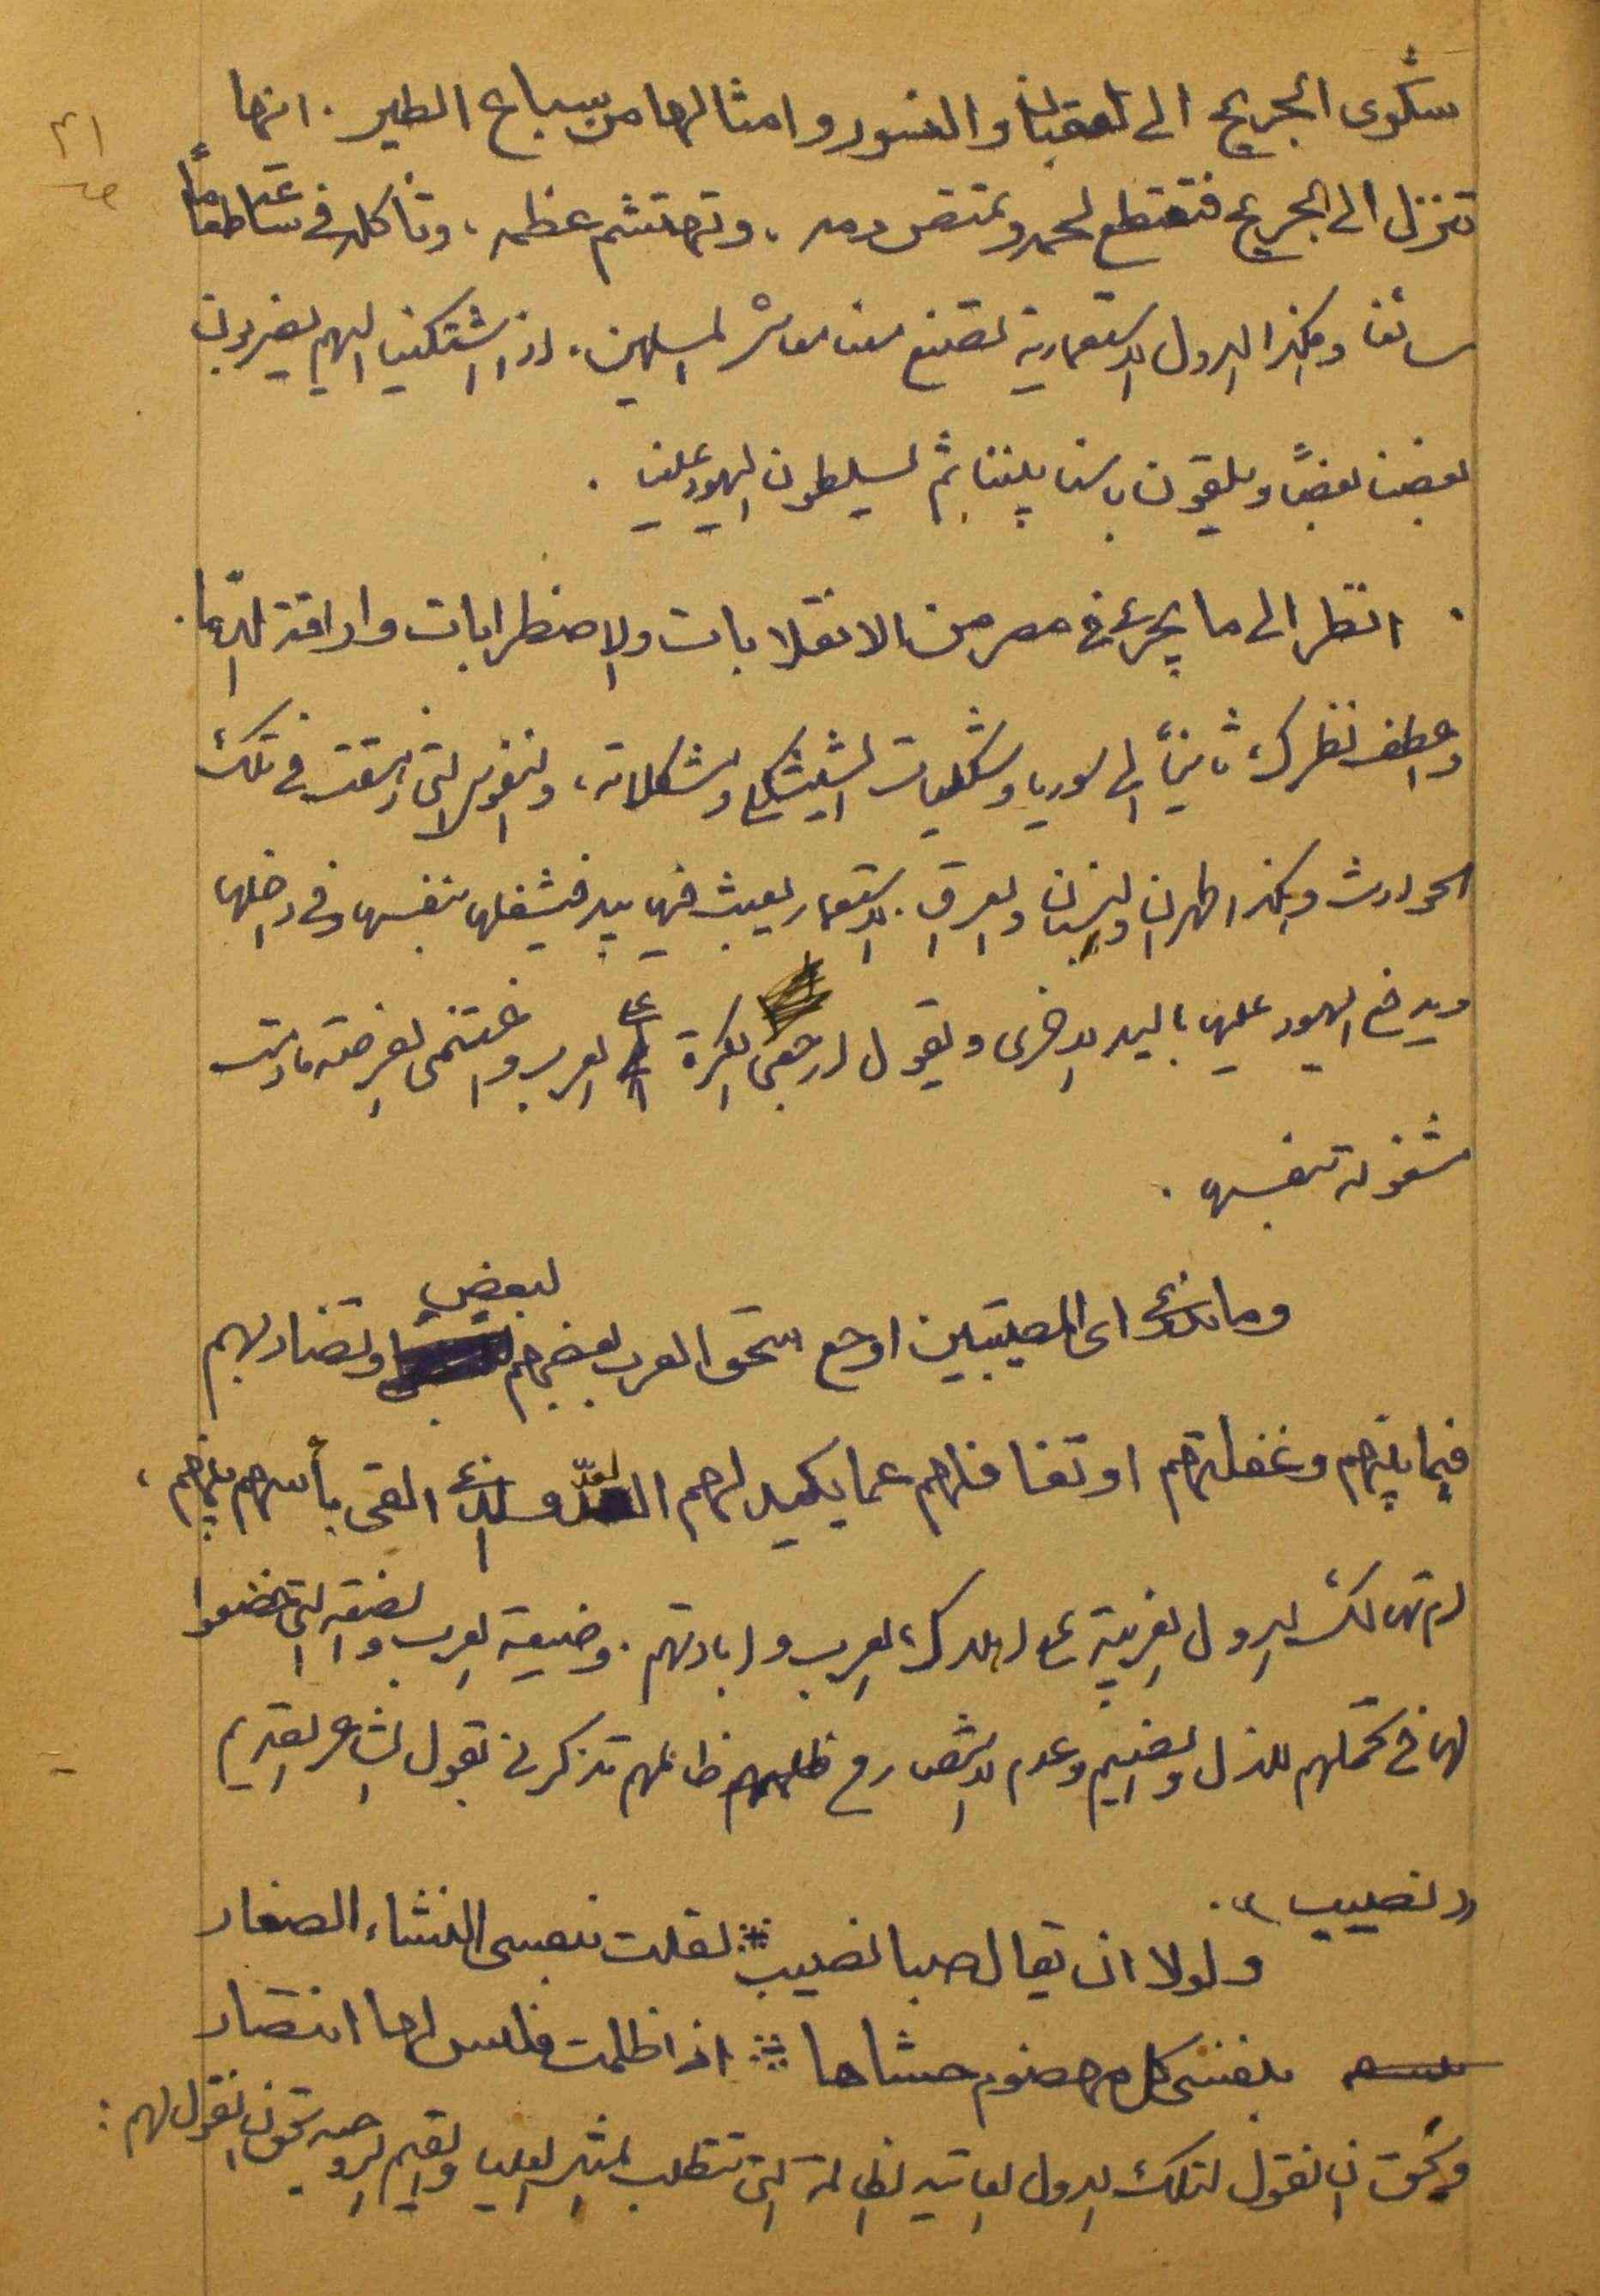 ٤١
شكوى الجريح الى العقبان والنسور وامثالها من سباع الطير . انها
تنزل الى الجريح فتقتطع لحمه وتمتص دمه ، وتهتشم عظمه ، وتأكله في ساعته طعاماً
سائغا وهكذا الدول الاستعمارية تصنع معنا معاشر المسلمين . اذا اشتكينا اليهم يضربون
بعضنا بعضاً ويلقون باسنا بيننا ثم يسلطون اليهود علينا .
انظر الى ما يجرى في مصر من الانقلابات والاضطرابات واراقة الدماء .
واعطف نظرك ثانياً الى سوريا وشكليات الشيشكلي ومشكلاته ، والنفوس التي ازهقت في تلك
الحوادث وهكذا طهران ولبنان والعراق . الاستعمار يعبث فيها بيد فيشغلها بنفسها وفي داخلها
ويدفع اليهود عليها باليد الاخرى ويقول ارجعى الكرة على العرب واغتنمى الفرصة مادامت
مشغولة بنفسها .
وما ندرى اى المصيبتين اوجع سحق العرب بعضهم لبعض وتضاربهم
فيما بينهم وغفلتهم او تغافلهم عما يكيد لهم العدو الذى القى بأسهم بينهم ،
ام تهالك الدول الغربية على اهلاك العرب وابادتهم . وضيعة العرب والضعة التي خضعوا
لها في تحملهم للذل والضيم وعدم الانتصار ظالمهم تذكرني بقول الشاعر القديم
(( نصيب )) .
ولولا ان يقال صبا نصيب ** لقلت بنفسى النشاء الصغار
بنفسى كل مهضوم حشاها ** اذا ظلمت فليس لها انتصار
ويحق ان نقول لتلك الدول العاتية الظالمة التي تتطلب المثل العليا والقيم الروحية يحق ان نقول لهم :